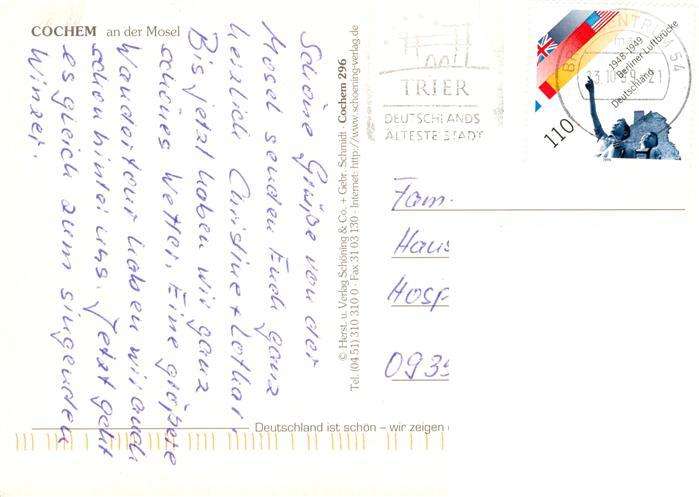 COCHEM an der Mosel
Schöne Grüße von der
Mosel senden Euch ganz
herzlich Christine + Lothar.
Bis jetzt haben wir ganz
schönes Wetter. Eine größere
Wandertour haben wir auch
schon hinter uns. Jetzt geht
es gleich zum singenden
Winzer.
© Herst. u. Verlag Schöning & Co. + Gebr. Schmidt Cochem 296
Tel. (04 51) 310 310 0 · Fax 31 03 130 · Internet: http://www.schoening-verlag.de
TRIER
DEUTSCHLANDS
ÄLTESTE STADT
BRIEFZENTRUM 54
21
1948-1949
Berliner Luftbrücke
Deutschland
110
Fam.
Haus
Hosp
093
Deutschland ist schön – wir zeigen